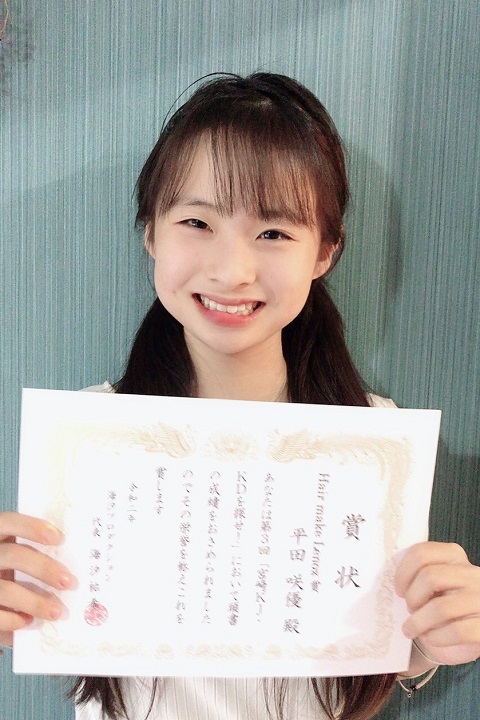 賞状
Hair make Lenon 賞
平田 咲優 殿
あなたは第3回「宮崎KJ・
KDを探せ!」において頭書
の成績をおさめられました
のでその栄誉を称えこれを
賞します
令和二年
海沢プロダクション
代表 海沢